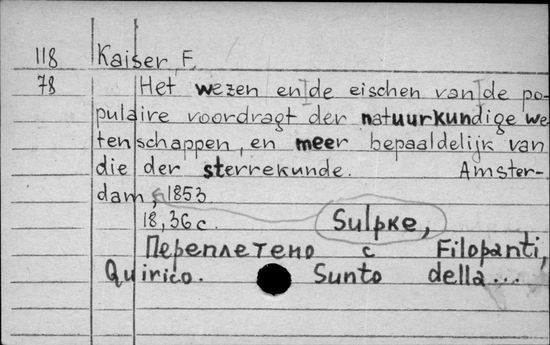 118 Kaiser, F.
78 Het wezen en de eischen van de po-
pulaire voordragt der natuurkundige we
tenschappen, en meer bepaaldelijk van
die der sterrekunde. Amster-
dam, 1853.
18, 36 c. Sulpke,
Переплетено с Filopanti,
Quirico. Sunto della...